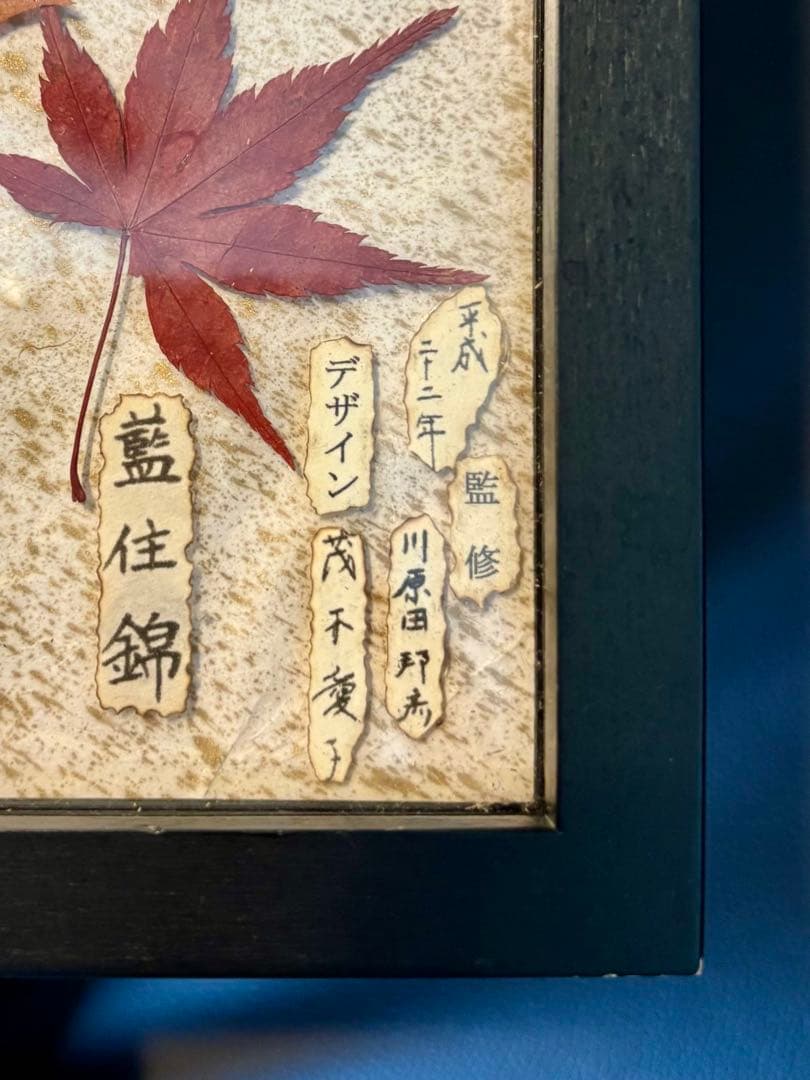 平成
二十二年
監修
川原田邦彦
デザイン
茂木愛子
藍住錦